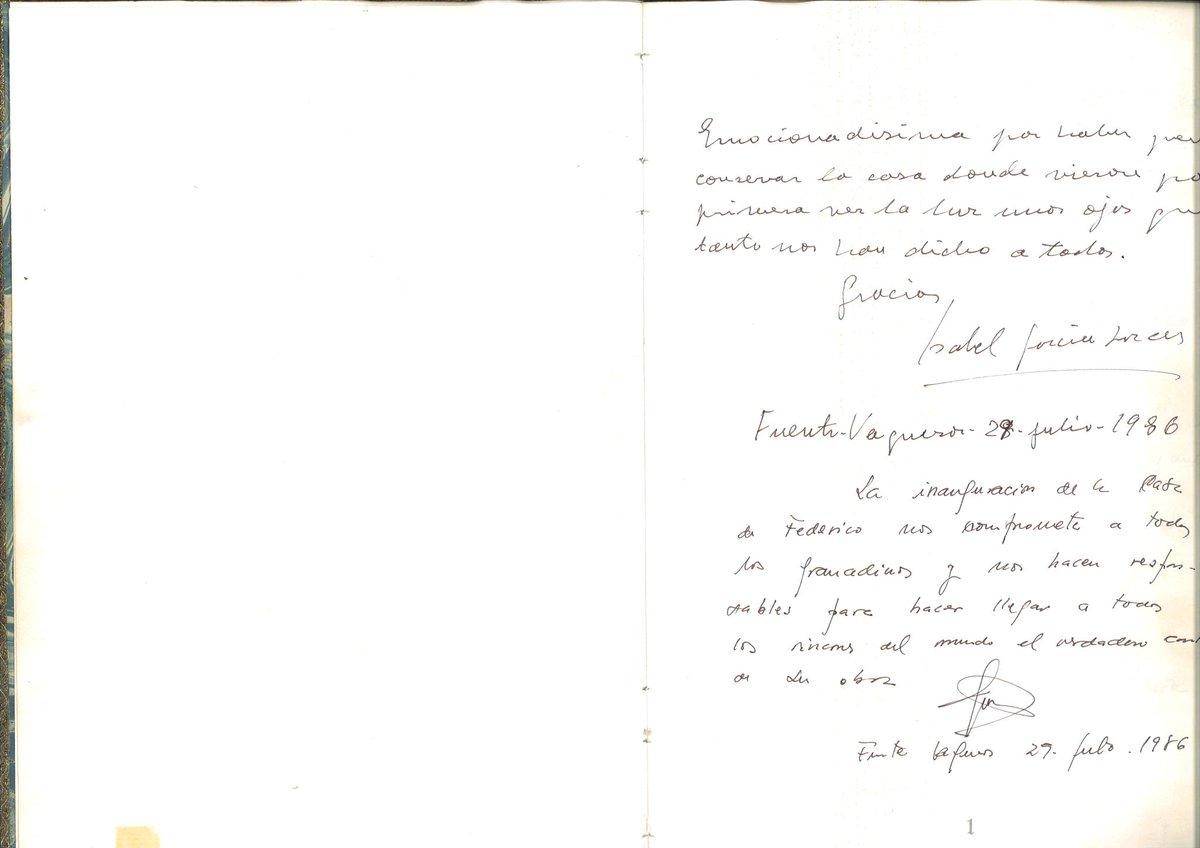 Emocionadisima por haber quer
conservar la casa donde vieron po
primera vez la luz unos ojos qu
tanto nos han dicho a todos.
Gracias,
Isabel García Lorca
Fuente-Vaqueros-29-julio-1986
La inauguracion de la Casa
de Federico nos compromete a todos
los granadinos y nos hacen respon-
sables para hacer llegar a todos
los rincones del mundo el verdadero cont
de su obra
Fuente Vaqueros 29. Julio. 1986
1